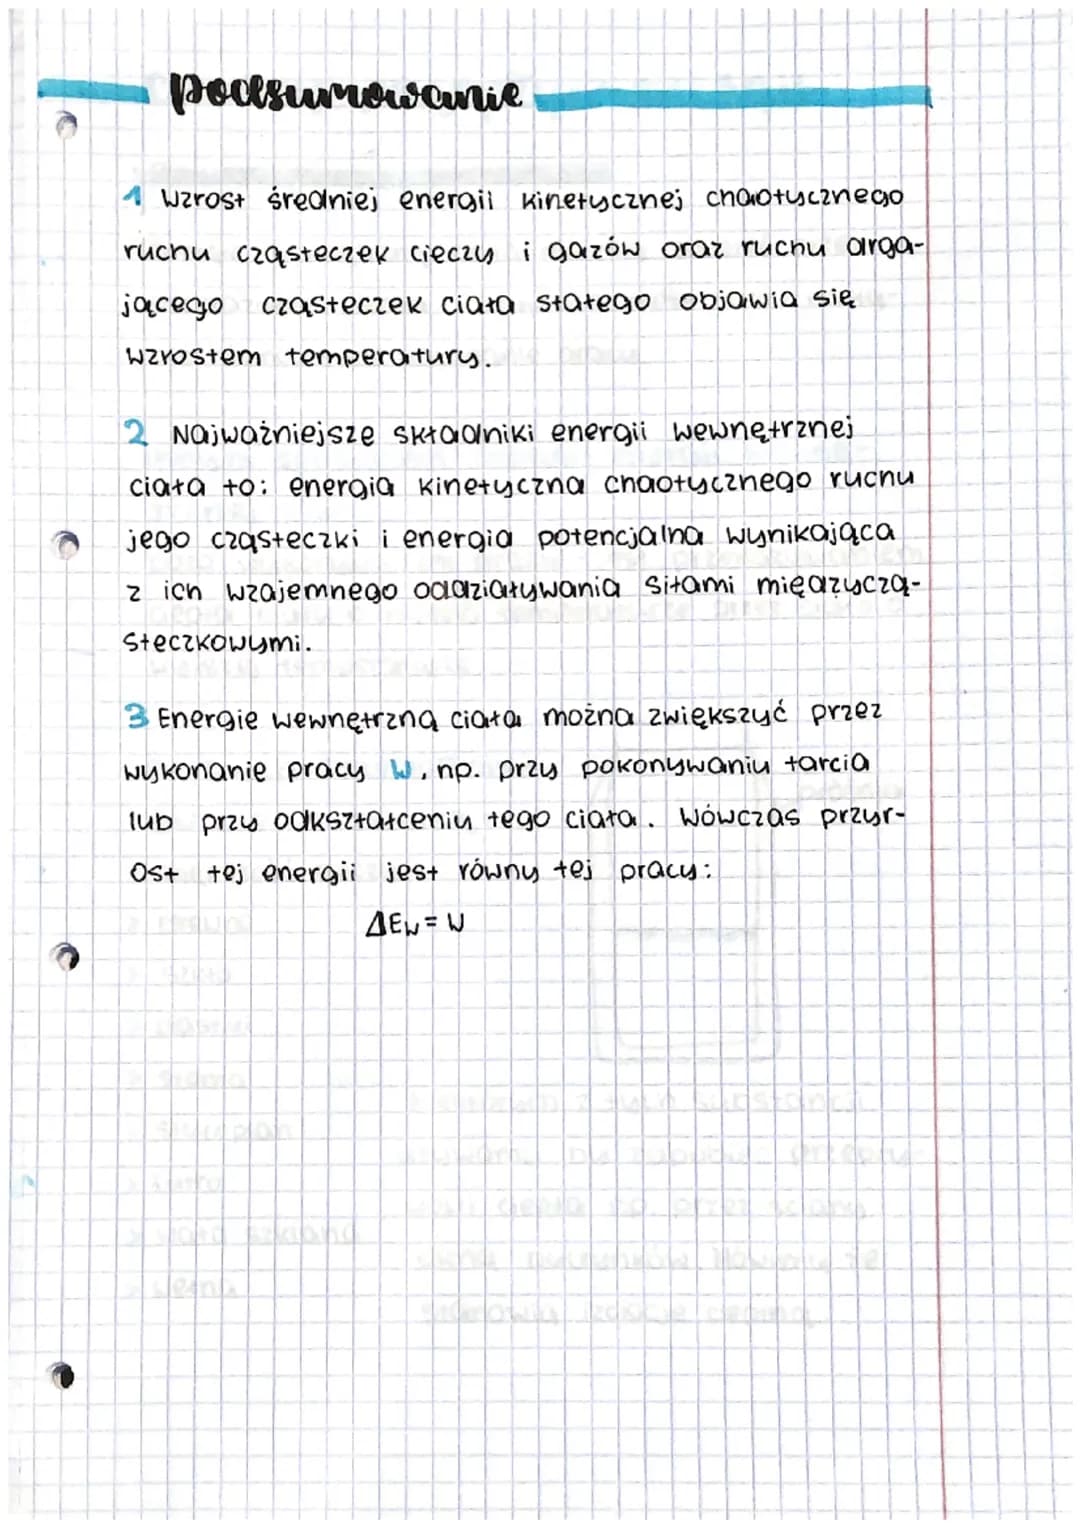 Podsumowanie
1 Wzrost średniej energii kinetycznej chaotycznego
ruchu cząsteczek cieczy i gazów oraz ruchu drga-
jącego cząsteczek ciała stałego objawia się
wzrostem temperatury.
2 Najważniejsze składniki energii wewnętrznej
ciała to: energia kinetyczna chaotycznego ruchu
jego cząsteczki i energia potencjalna wynikająca
z ich wzajemnego oddziaływania siłami międzyczą-
steczkowymi.
3 Energie wewnętrzną ciała można zwiększyć przez
wykonanie pracy W, np. przy pokonywaniu tarcia
lub przy odkształceniu tego ciała. Wówczas przyr-
ost tej energii jest równy tej pracy:
ΔEw = W